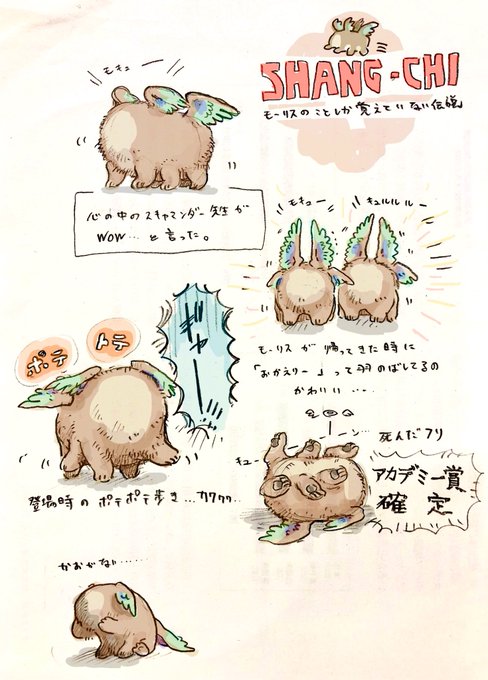 SHANG-CHI
モーリスのことしか覚えていない伝説
モキュー
心の中のスキャマンダー先生が
WOW…と言った。
モキュー
キュルルルー
モーリスが帰ってきた時に
「おかえりー」って羽のばしてるの
かわいい…
ポテ
トテ
ギャー
登場時のポテポテ歩き…カワワワ
死んだフリ
キュー
アカデミー賞
確定
かおがない……